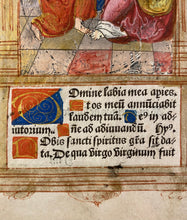 Domine labia mea apies
tos meũ annũciabit
laudem tuã. Deꝰ in ad
iutorium
ñe ad adiuvandũ. Hỹ.
Nobis sancti spiritus gr̃a sit da
De qua virgo virginum fuit